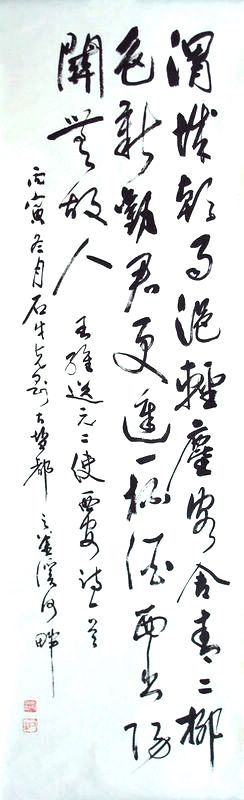 渭城朝雨浥輕塵客舍青〻柳
色新勸君更進一杯酒西出陽
關無故人
王維送元二使西安詩一首
丙寅冬月石牛古都溪河畔